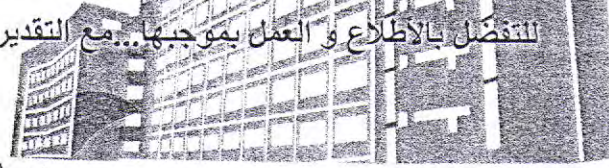 للتفضل بالاطلاع و العمل بموجبها...مع التقدير